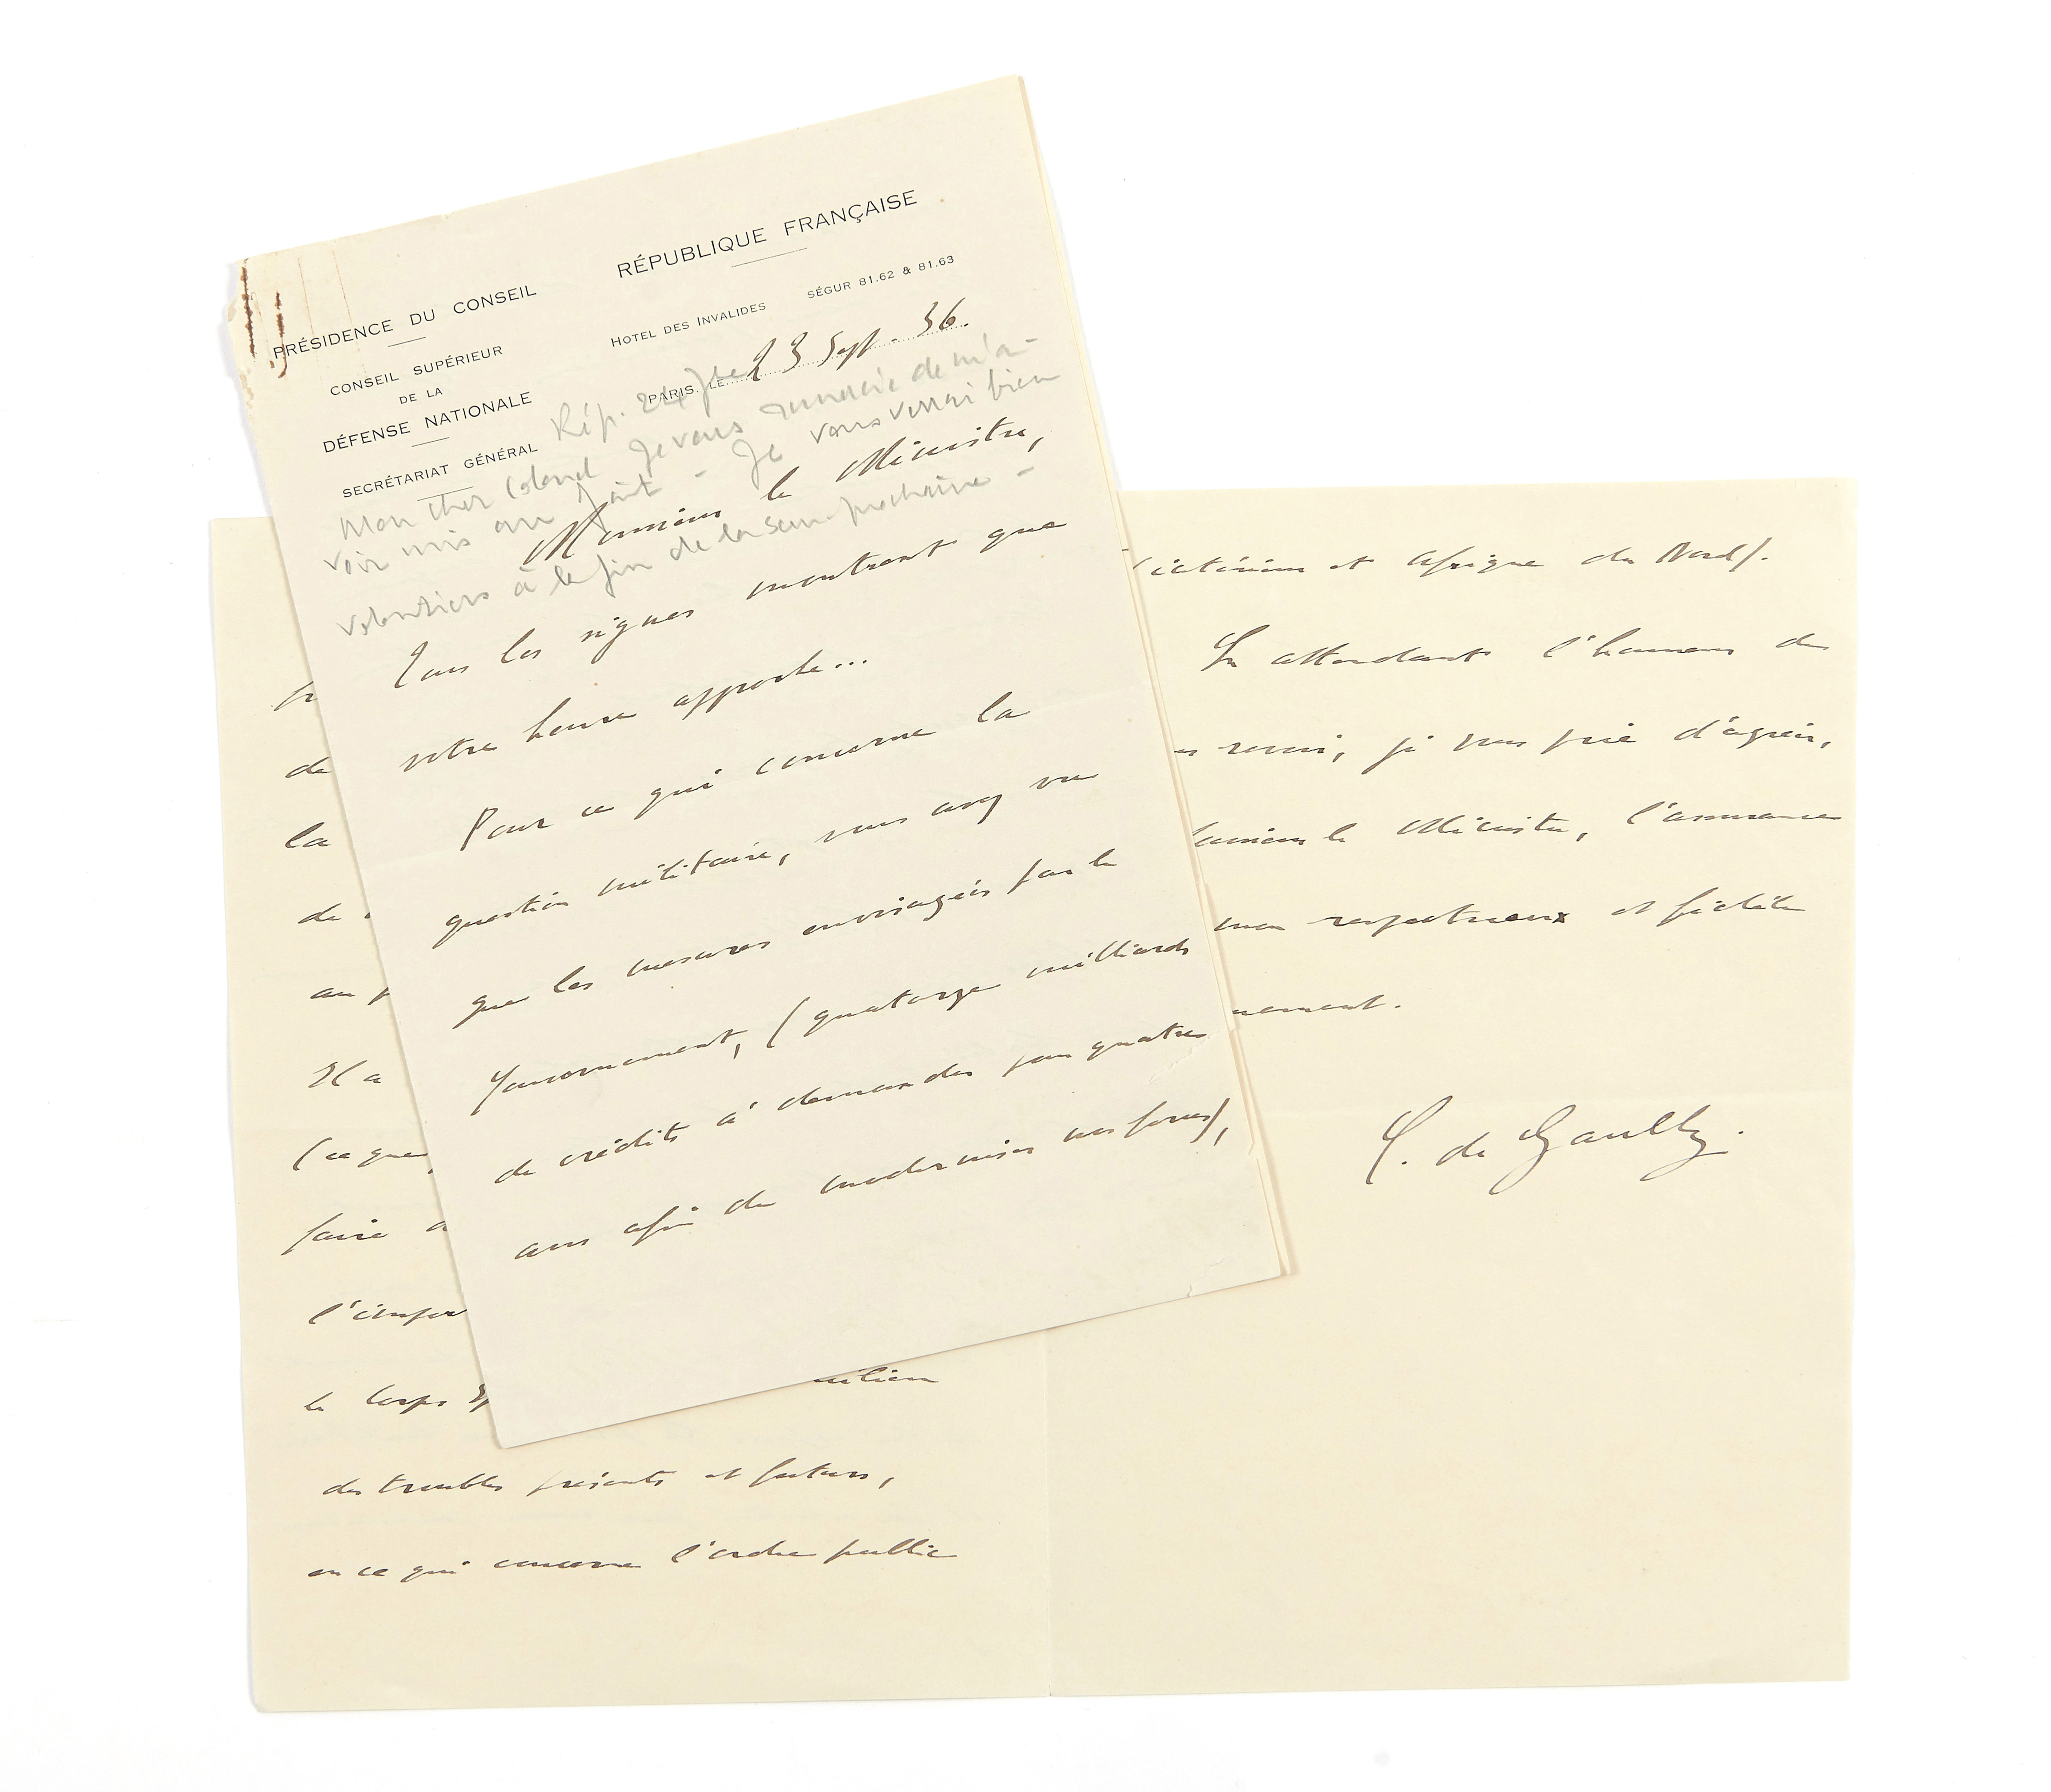 RÉPUBLIQUE FRANÇAISE
PRÉSIDENCE DU CONSEIL
CONSEIL SUPÉRIEUR
DE LA
DÉFENSE NATIONALE
SECRÉTARIAT GÉNÉRAL
HOTEL DES INVALIDES SÉGUR 81.62 & 81.63
PARIS, LE 23 Sept. 36.
Rép. 24 7bre
Mon cher Colonel Je vous remercie de m'a-
voir mis au fait - Je vous verrai bien
volontiers à la fin de la sem. prochaine -
Monsieur le Ministre,
Tous les signes montrent que
votre heure approche...
Pour ce qui concerne la
question militaire, vous avez vu
que les mesures envisagées par le
Gouvernement, (quatorze milliards
de crédits à demander pour quatre
ans afin de moderniser nos forces),
de
la
de
au
Il a
(ce que,
faire
le Corps
des troubles présents et futurs,
en ce qui concerne l'ordre public
et Afrique du Nord).
En attendant l'honneur de
revoir, je vous prie d'agréer,
le Ministre, l'assurance
mon respectueux et fidèle
C. de Gaulle.